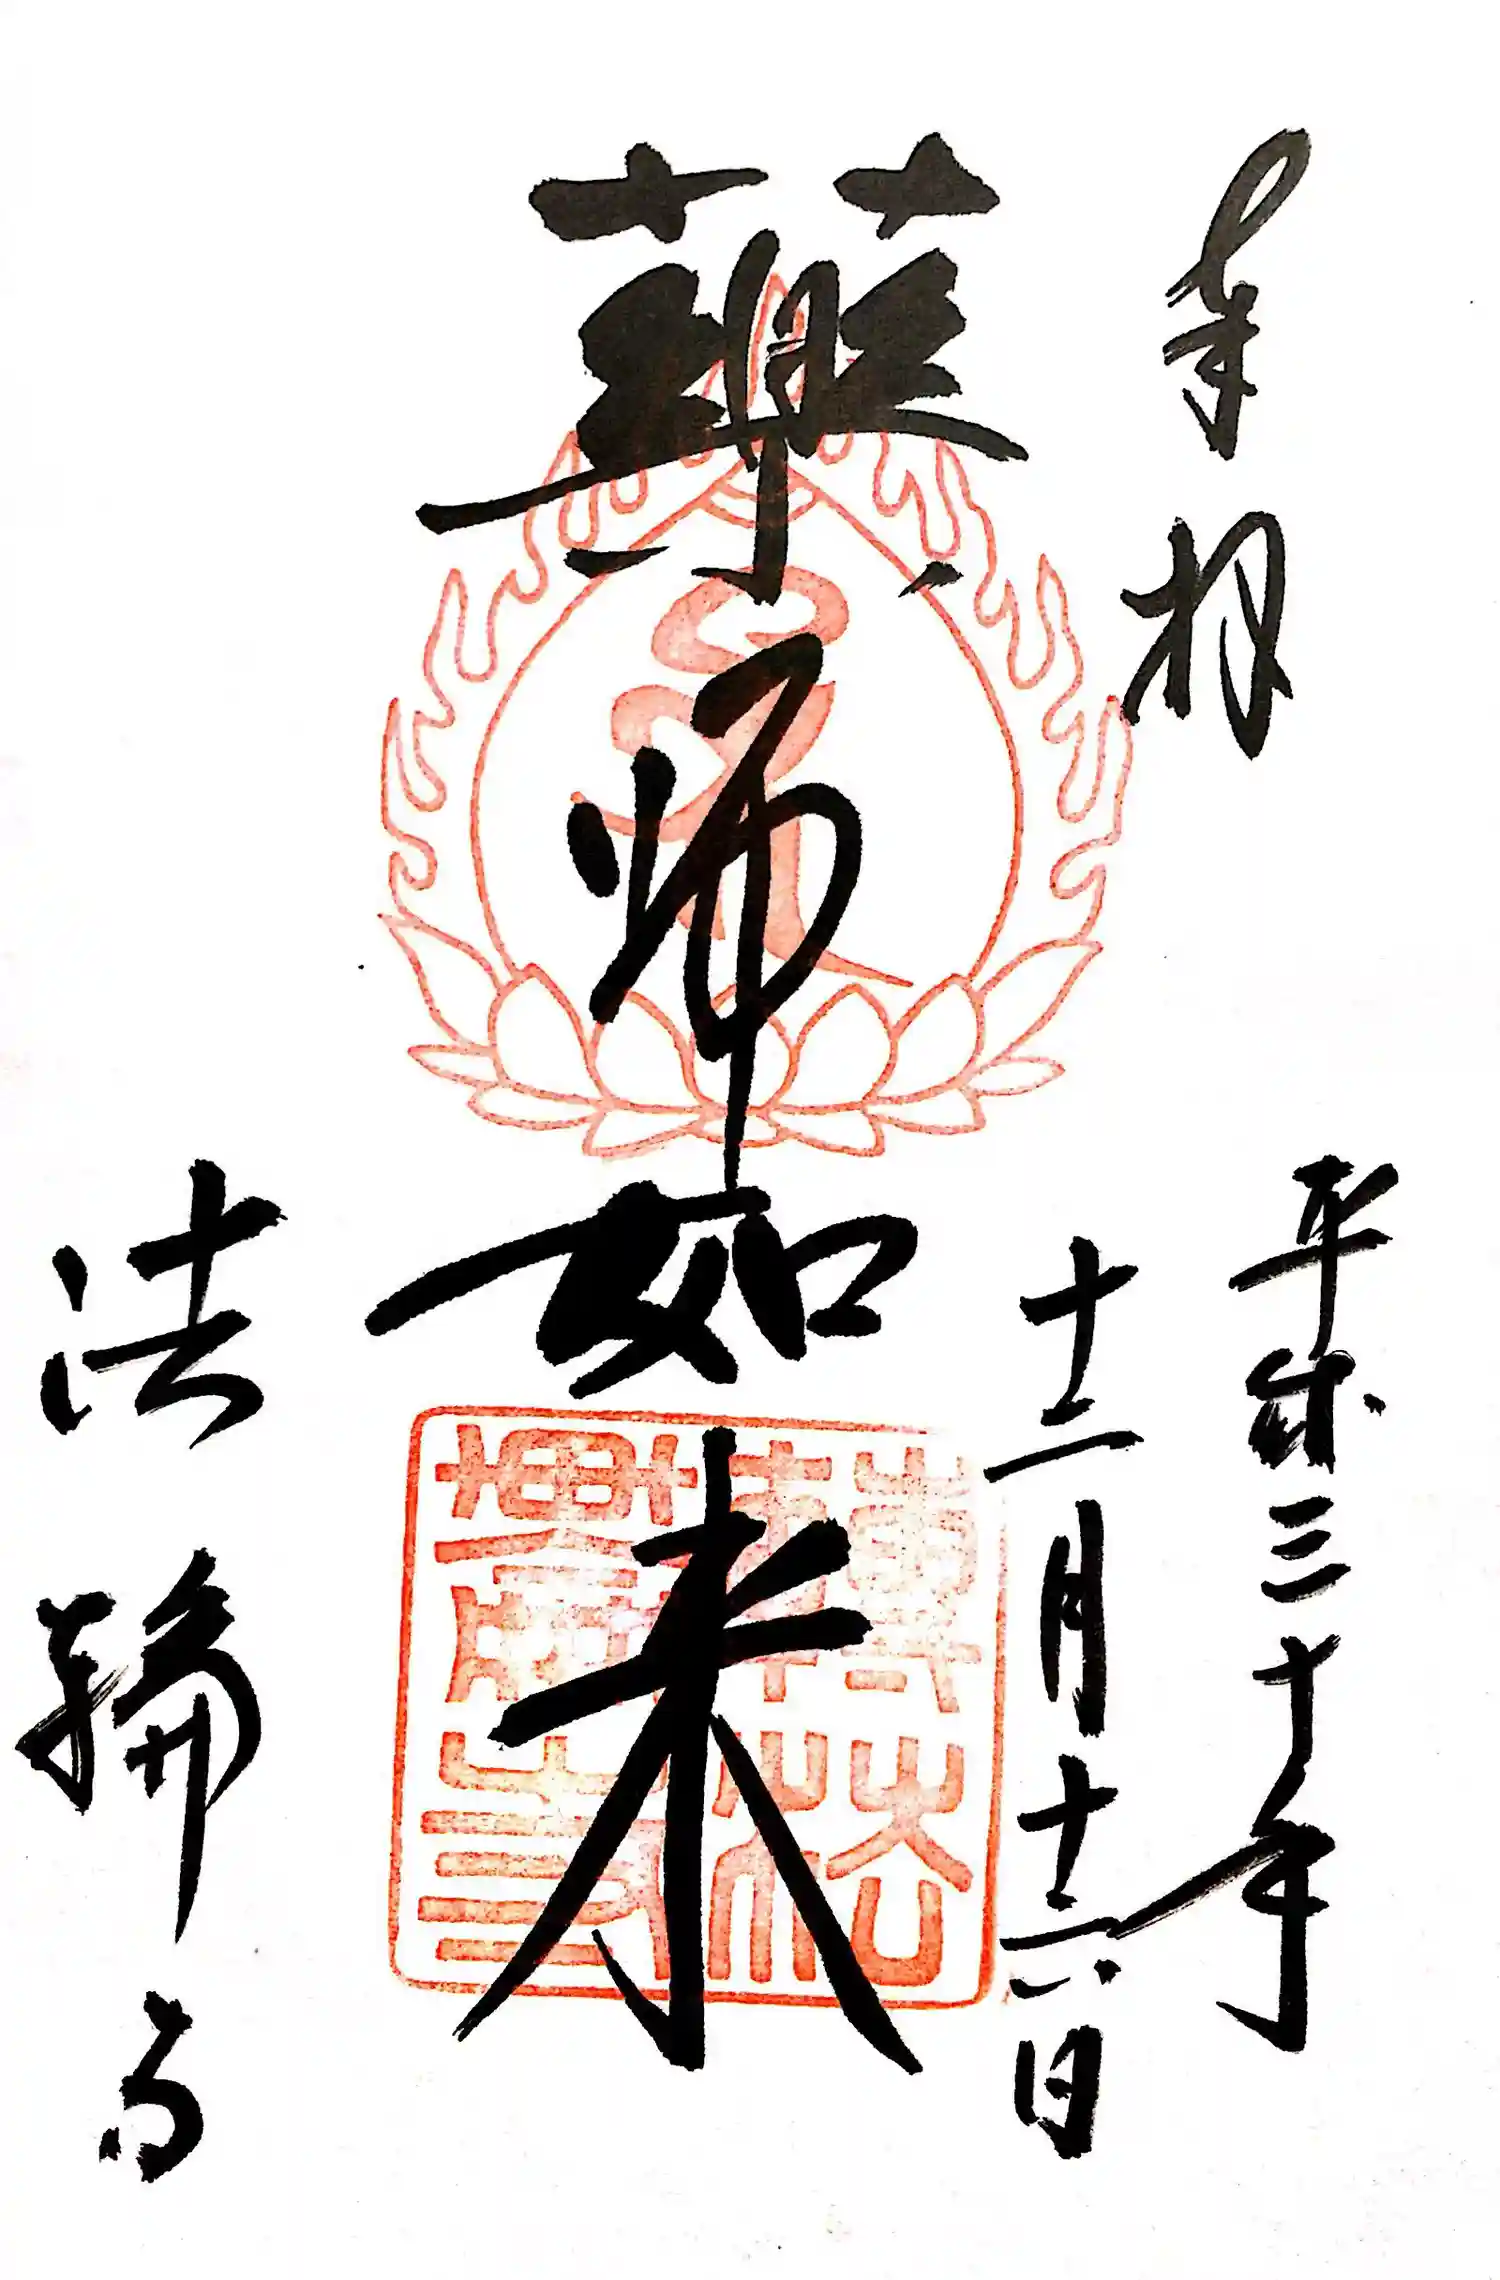 奉拝
平成三十年
十二月十六日
藥師如来
法輪寺